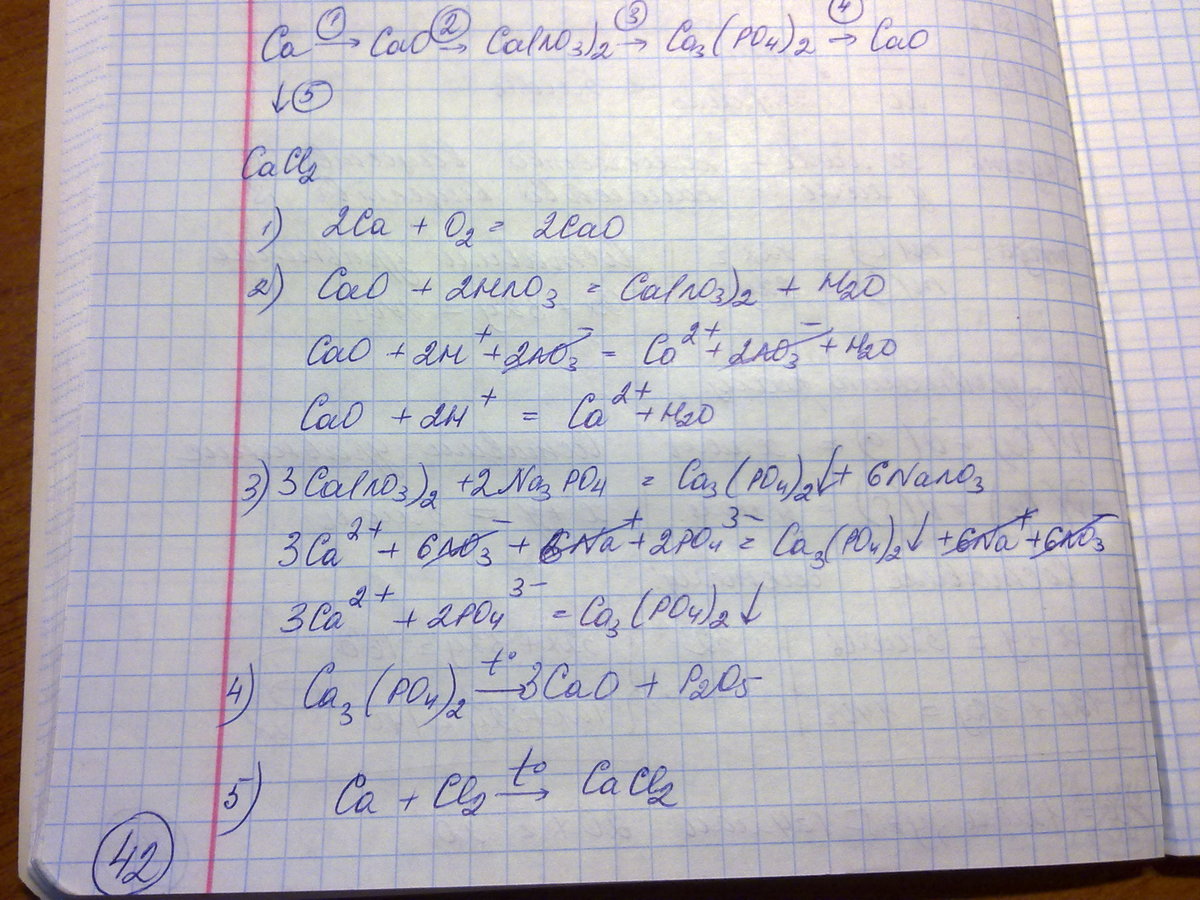 Ca →① CaO →② Ca(NO3)2 →③ Ca3(PO4)2 →④ CaO
↓⑤
CaCl2
1) 2Ca + O2 = 2CaO
2) CaO + 2HNO3 = Ca(NO3)2 + H2O
CaO + 2H⁺ + 2NO3⁻ = Ca²⁺ + 2NO3⁻ + H2O
CaO + 2H⁺ = Ca²⁺ + H2O
3) 3Ca(NO3)2 + 2Na3PO4 = Ca3(PO4)2↓ + 6NaNO3
3Ca²⁺ + 6NO3⁻ + 6Na⁺ + 2PO4³⁻ = Ca3(PO4)2↓ + 6Na⁺ + 6NO3⁻
3Ca²⁺ + 2PO4³⁻ = Ca3(PO4)2↓
4) Ca3(PO4)2 →t° 3CaO + P2O5
5) Ca + Cl2 →t° CaCl2
42